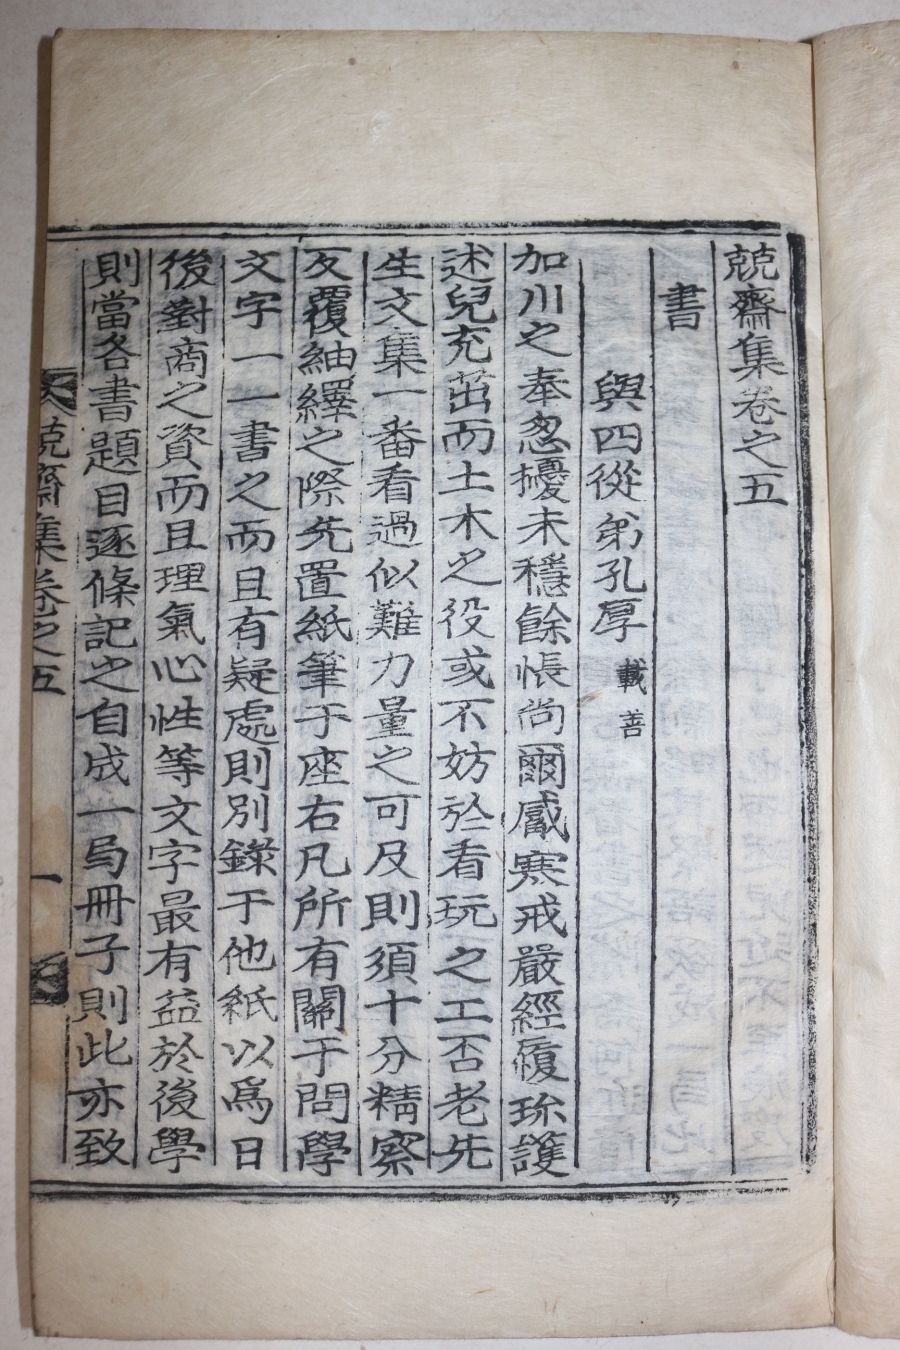 兢齋集卷之五
書
與四從弟孔厚 載善
加川之奉忽擾未穩餘悵尙爾膚寒戒嚴經履珎護
述兒充茁而土木之役或不妨於看玩之工否老先
生文集一番看過似難力量之可及則須十分精察
反覆紬繹之際先置紙筆于座右凡所有關于問學
文字一一書之而且有疑處則別錄于他紙以爲日
後對商之資而且理氣心性等文字最有益於後學
則當各書題目逐條記之自成一局冊子則此亦致
兢齋集卷之五
一